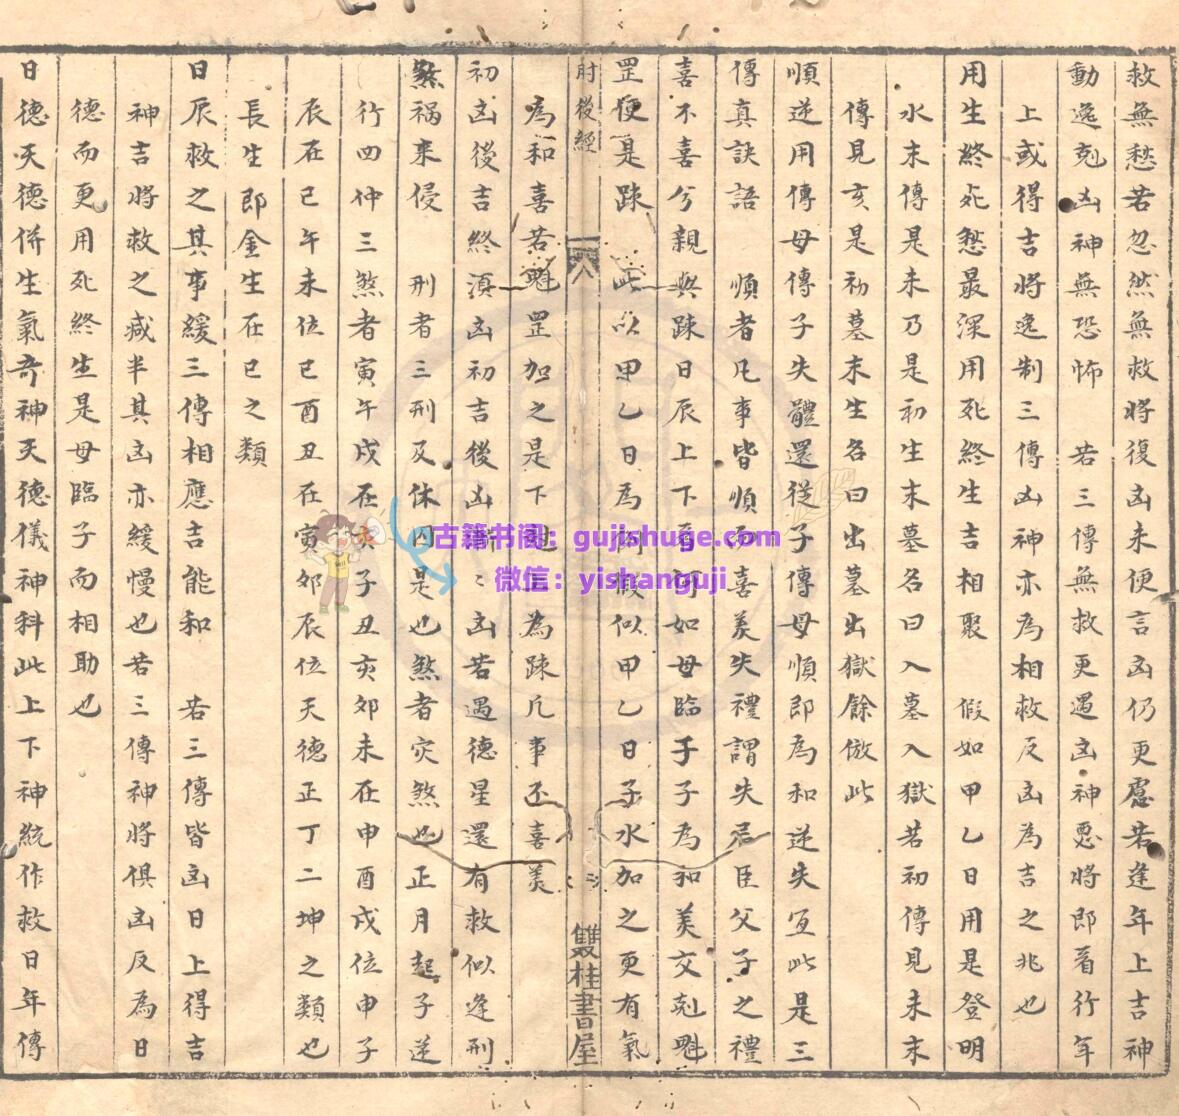 救無愁若忽然無救將復凶未便言凶仍更慮若逢年上吉神
動逸剋凶神無恐怖　若三傳無救更遇凶神惡將即看行年
上或得吉將逸制三傳凶神亦為相救反凶為吉之兆也
用生終死愁最深用死終生吉相聚　假如甲乙日用是登明
水末傳是未乃是初生末墓名曰入墓入獄若初傳見未末
傳見亥是初墓末生名曰出墓出獄餘倣此
順逆用傳母傳子失體還從子傳母順即為和逆失宜此是三
傳真訣語　順者凡事皆順而喜美失禮謂失君臣父子之禮
喜不喜兮親與踈日辰上下看何如母臨子子為和美交剋魁
罡便是踈　此以甲乙日為例假似甲乙日子水加之更有氣
肘後經
雙桂書屋
為和喜若魁罡加之是下剋上為踈凡事不喜美
初凶後吉終湏凶初吉後凶漸〻凶若遇德星還有救似逢刑
煞禍来侵　刑者三刑及休囚是也煞者灾煞也正月起子逆
行四仲三煞者寅午戌在亥子丑亥卯未在申酉戌位申子
辰在巳午未位巳酉丑在寅卯辰位天德正丁二坤之類也
長生即金生在巳之類
日辰救之其事緩三傳相應吉能和　若三傳皆凶日上得吉
神吉將救之减半其凶亦緩慢也若三傳神將俱凶反為日
德而更用死終生是母臨子而相助也
日德天德併生氣奇神天德儀神科此上下神統作救日年傳
古籍书阁：gujishuge.com
微信：yishanguji